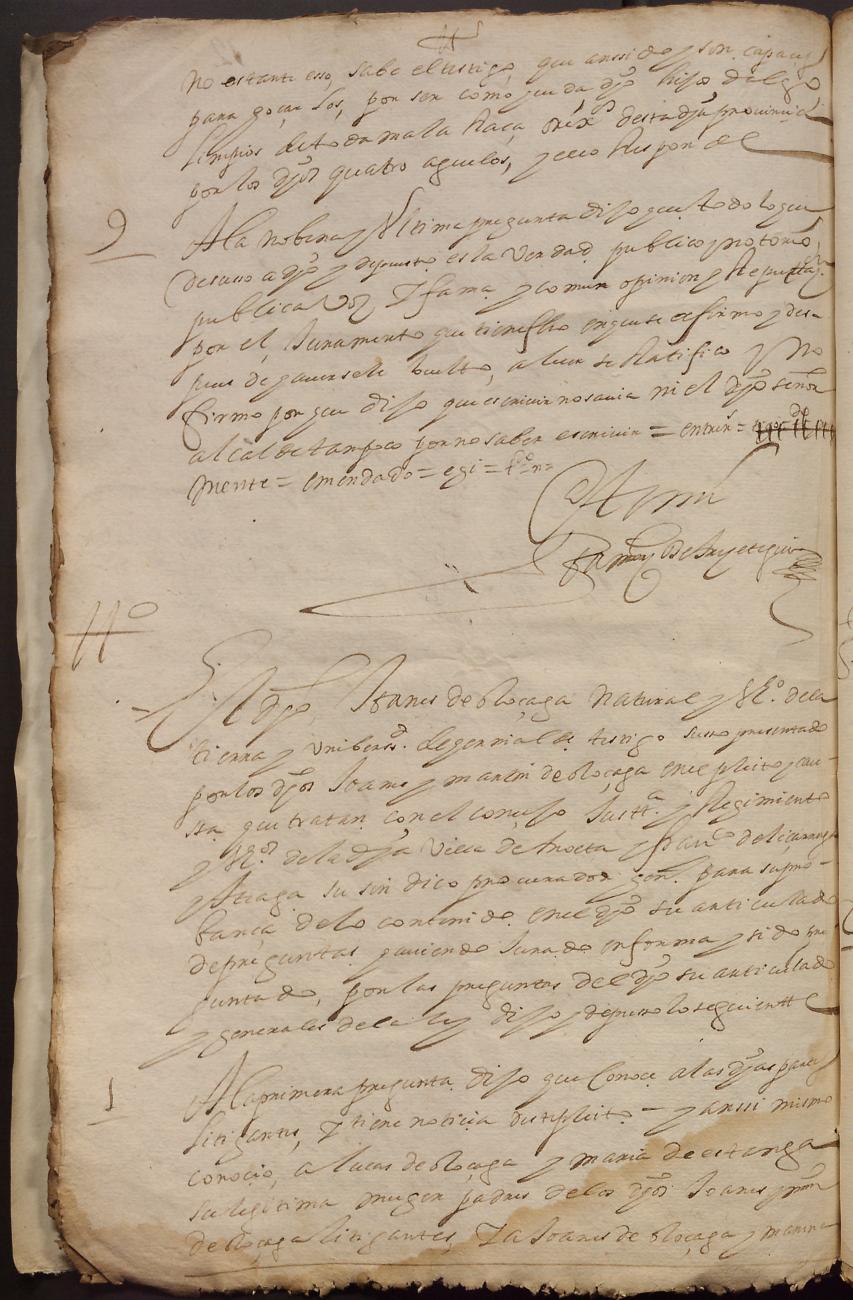 no estante esso, sabe el testigo, que anssi dos son capaçes
para goçar los, por ser como queda dho hijos dalgo
limpios de toda mala Raça, desta dha provinçia
por los dhos quatro aguelos, y esto Responde
9
A la nobena y Ultima pregunta dijo que todo lo que
desusso a dho y depuesto es la Verdad publico y notorio
publica Voz Y fama y comun opinion y Reputaçn
por el Juramento que tiene fho en que se afirmo y des-
pues de haversele buelto a leer se Ratifico Y No
firmo por que dijo que escrivir no savia ni el dho señor
alcalde tampoco por no saber escrivir = entreRs =
mente = emendado = egi =
Ante mi
de Anyetegui
Tº
El dho Joanes de Oloçaga Natural y Vº. de la
tierra y Unibersd. de gorriael testigo susso presentado
por los dhos Joanes y martin de Oloçaga en el pleito y cau-
sa que tratan con el conçejo Justta y Regimiento
y Vºs de la dha Villa de hoeta y franco de licarraga
y Ateaga su sindico procurador genl. para su pro-
bança de lo contenido en el dho su articulado
de preguntas haviendo Jurado en forma y sido pre-
guntado, por las preguntas del dho su articulado
y generales de la ley dijo y depusso lo seguientte
1
A la primera pregunta dijo que Conoçe a las dhas partes
litigantes, Y tiene notiçia deste pleito - y anssi mismo
conoçio, a lucas de Oloçaga y maria de estanga
su legitima muger padres de los dhos Joanes y mrn
de Oloçaga litigantes, Y a Joanes de Oloçaga y marina